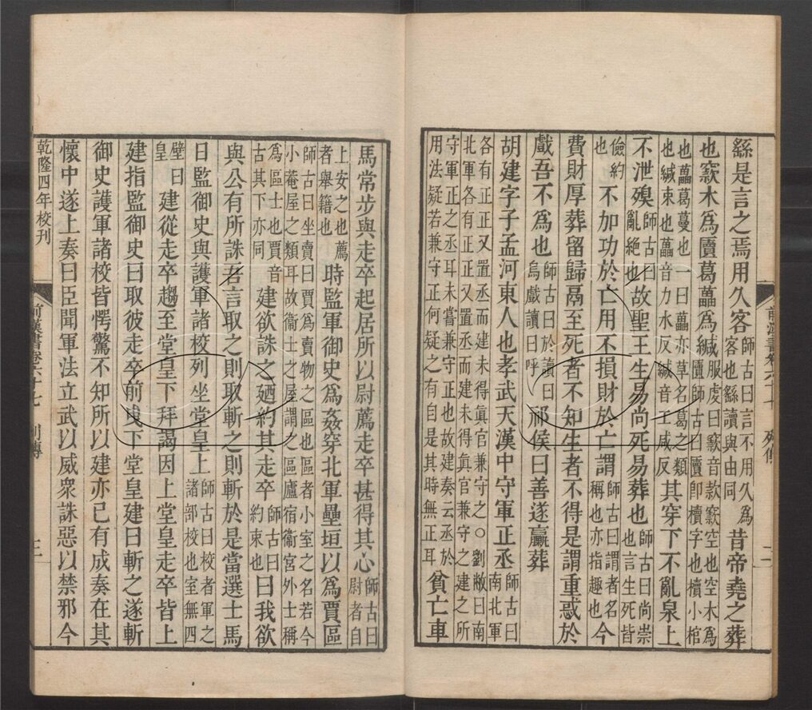 繇是言之焉用久客師古曰言不用久爲客也繇讀與由同昔帝堯之葬
也窾木爲匵葛藟爲緘服虔曰窾音款窾空也空木爲匵師古曰匵即櫝字也櫝小棺
也藟葛蔓也一曰藟亦草名葛之類也緘束也藟音力水反緘音工咸反其穿下不亂泉上
不泄殠師古曰亂絶也故聖王生易尚死易葬也師古曰尚崇也言生死皆
儉約也不加功於亡用不損財於亡謂師古曰謂者名稱也亦指趣也今
費財厚葬留歸鬲至死者不知生者不得是謂重惑於
戲吾不爲也師古曰於讀曰烏戲讀曰呼祁侯曰善遂臝葬
胡建字子孟河東人也孝武天漢中守軍正丞師古曰南北軍
各有正正又置丞而建未得真官兼守之○劉敞曰南北軍各有正正又置丞而建未得真官兼守之建之所
守軍正之丞耳未嘗兼守正也故建奏云丞於用法疑若兼守正何疑之有自是其時無正耳貧亡車
馬常步與走卒起居所以尉薦走卒甚得其心師古曰尉者自
上安之也薦者舉籍也時監軍御史爲姦穿北軍壘垣以爲賈區
師古曰坐賣曰賈爲賣物之區也區者小室之名若今小菴屋之類耳故衞士之屋謂之區廬宿衞宮外士稱
爲區士也賈音古其下亦同建欲誅之廼約其走卒師古曰約束也曰我欲
與公有所誅者言取之則取斬之則斬於是當選士馬
日監御史與護軍諸校列坐堂皇上師古曰校者軍之諸部校也室無四
壁曰皇建從走卒趨至堂皇下拜謁因上堂皇走卒皆上
建指監御史曰取彼走卒前曳下堂皇建曰斬之遂斬
御史護軍諸校皆愕驚不知所以建亦已有成奏在其
懷中遂上奏曰臣聞軍法立武以威衆誅惡以禁邪今
乾隆四年校刊
前漢書卷六十七 列傳